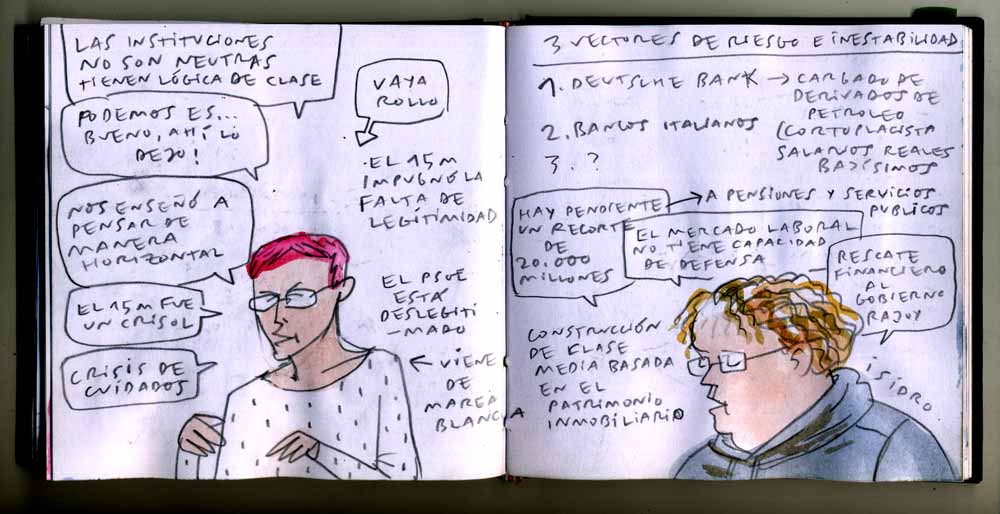 LAS INSTITUCIONES
NO SON NEUTRAS
TIENEN LÓGICA DE CLASE
PODEMOS ES...
BUENO, AHÍ LO
DEJO!
NOS ENSEÑÓ A
PENSAR DE
MANERA
HORIZONTAL
EL 15M FUE
UN CRISOL
CRISIS DE
CUIDADOS
VAYA
ROLLO
.EL 15M
IMPUGNÓ LA
FALTA DE
LEGITIMIDAD
EL PSOE
ESTÁ
DESLEGITI
-MADO
← VIENE
DE
MAREA
BLANCA
3 VECTORES DE RIESGO E INESTABILIDAD
1. DEUTSCHE BANK → CARGADO DE
DERIVADOS DE
PETROLEO
2. BANCOS ITALIANOS
(CORTOPLACISTA
3. ?
SALARIOS REALES
BAJÍSIMOS
HAY PENDIENTE
UN RECORTE
DE
20.000
MILLONES
→ A PENSIONES Y SERVICIOS
PUBLICOS
EL MERCADO LABORAL
NO TIENE CAPACIDAD
DE DEFENSA
RESCATE
FINANCIERO
AL
GOBIERNO
RAJOY
CONSTRUCCIÓN
DE KLASE
MEDIA BASADA
EN EL
PATRIMONIO
INMOBILIARIO
ISIDRO